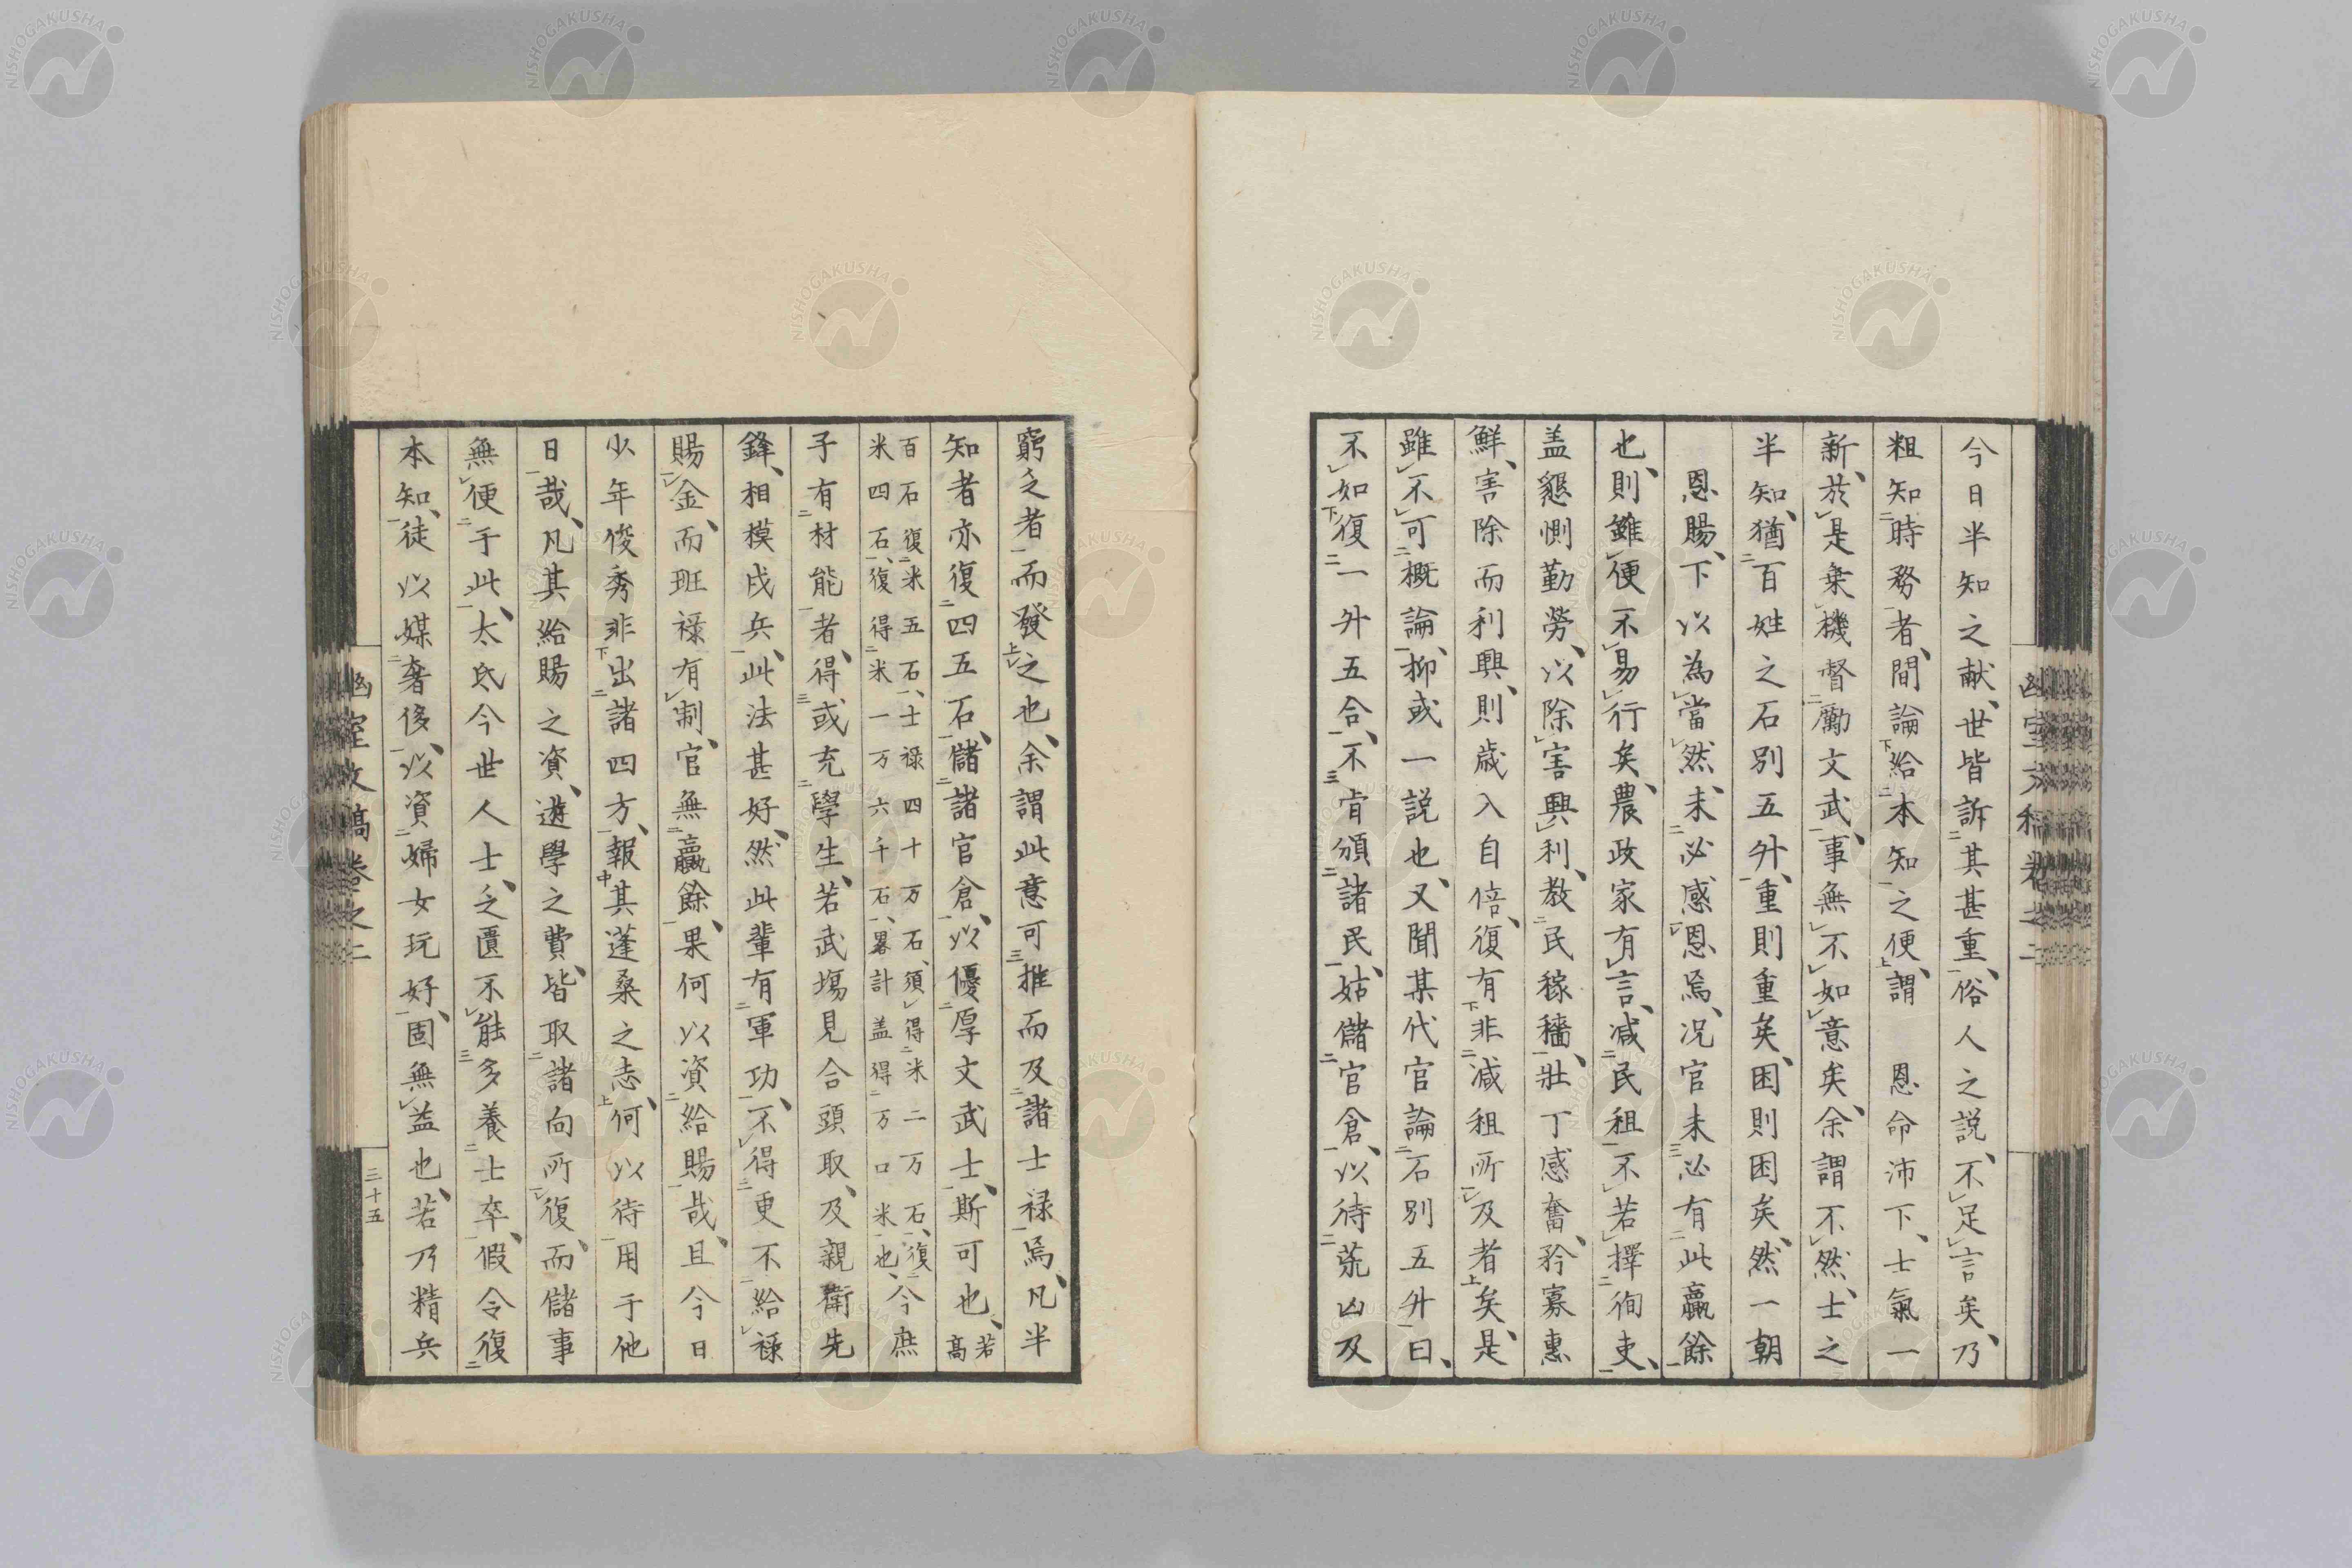 今日半知之献、世皆訴其甚重、俗人之説、不足言矣、乃
粗知時務者、間論給本知之便、謂 恩命沛下、士氣一
新、於是乗機督勵文武、事無不如意矣、余謂不然、士之
半知、猶百姓之石別五升、重則重矣、困則困矣、然一朝
恩賜、下以為當然、未必感恩焉、況官未必有此贏餘
也、則雖便不易行矣、農政家有言、减民租不若擇徇吏、
盖懇惻勤勞、以除害興利、教民稼穡、壯丁感奮、矜寡惠
鮮、害除而利興、則歳入自倍、復有非减租所及者矣、是
雖不可概論、抑或一説也、又聞某代官論石別五升曰、
不如復一升五合、不肯頒諸民、姑儲官倉、以待荒凶及
窮乏者而發之也、余謂此意可推而及諸士禄焉、凡半
知者亦復四五石、儲諸官倉、以優厚文武士、斯可也、若高
百石復米五石、士禄四十万石、須得米二万石、復
米四石、復得米一万六千石、畧計盖得万口米也、今庶
子有材能者、得或充學生、若武塲見合頭取、及親衛先
鋒、相模戍兵、此法甚好、然此輩有軍功、不得更不給禄
賜金、而班禄有制、官無贏餘、果何以資給賜哉、且今日
少年俊秀非出諸四方、報其蓬桑之志、何以待用于他
日哉、凡其給賜之資、遊學之費、皆取諸向所復、而儲事
無便于此、太氐今世人士、乏匱不能多養士卒、假令復
本知、徒以媒奢侈、以資婦女玩好、固無益也、若乃精兵
幽室文稿卷之二
三十五
幽室文稿卷之二